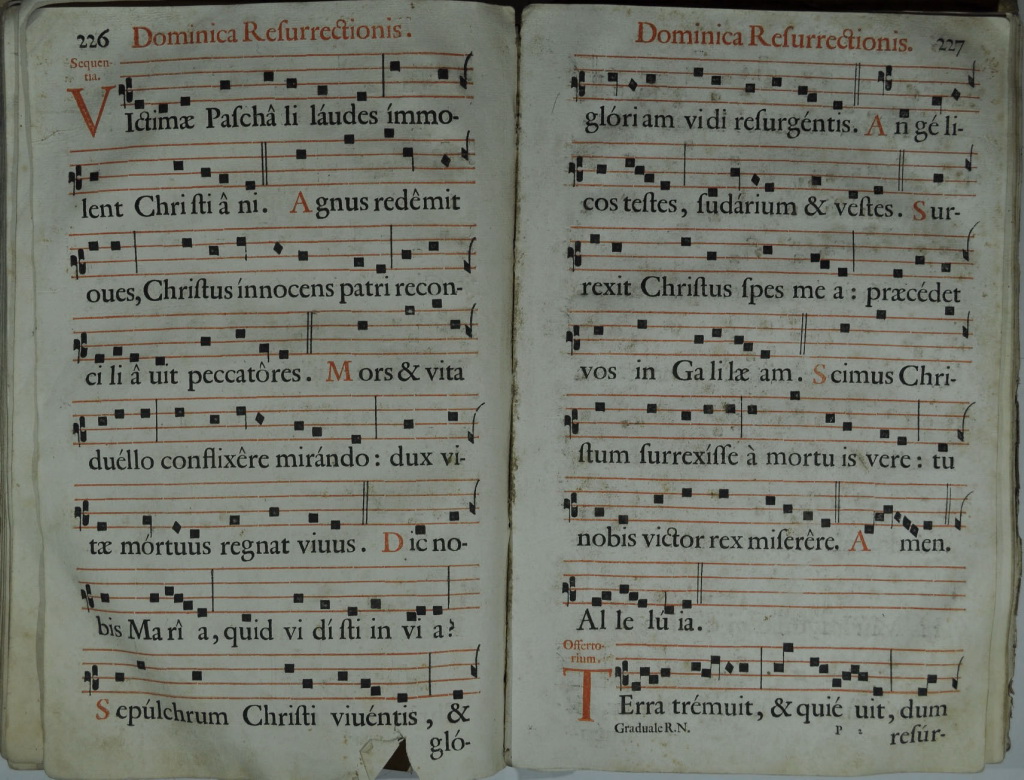 226 Dominica Reſurrectionis.
Sequen-
tia.
VIctimæ Paſchâ li láudes ímmo-
lent Chri ſti â ni. A gnus redêmit
oues, Chriſtus ínnocens patri recon-
ci li â uit peccatôres. M ors & vita
duéllo conflixêre mirándo: dux vi-
tæ mórtuus regnat viuus. D ic no-
bis Ma rî a, quid vi dí ſti in vi a?
S epúlchrum Chriſti viuéntis, &
gló-
Dominica Reſurrectionis. 227
glóri am vi di reſurgéntis. A n gé li-
cos teſtes, ſudárium & veſtes. S ur-
rexit Chriſtus ſpes me a: præcédet
vos in Ga li læ am. S cimus Chri-
ſtum ſurrexíſſe à mortu is vere: tu
nobis victor rex miſerêre. A men.
Al le lú ia.
Offerto-
rium.
TErra trémuit, & quié uit, dum
Graduale R.N. P 2 reſúr-